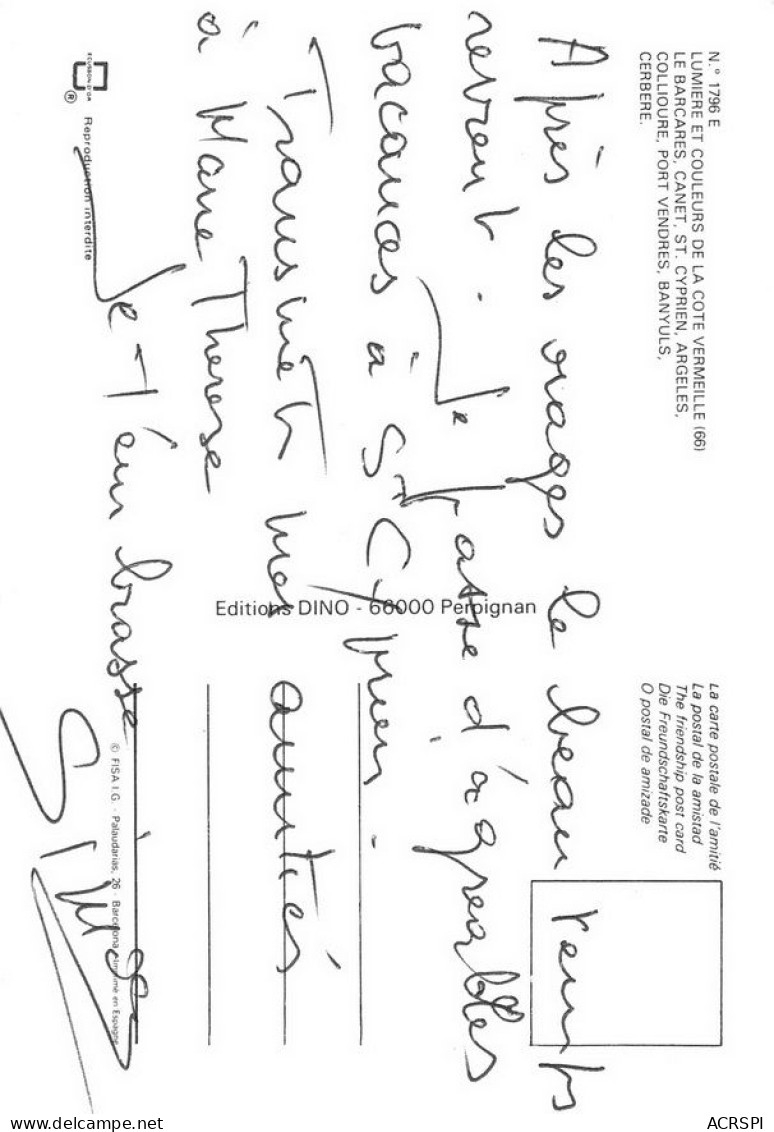 N.° 1796 E
LUMIERE ET COULEURS DE LA COTE VERMEILLE (66)
LE BARCARES, CANET, ST. CYPRIEN, ARGELES,
COLLIOURE, PORT VENDRES, BANYULS,
CERBERE.
La carte postale de l'amitié
La postal de la amistad
The friendship post card
Die Freundschaftskarte
O postal de amizade
Après les orages le beau temps
revient. Je passe d'agréables
vacances à St Cyprien.
Transmets mes amitiés
à Marie Thérèse
Je t'embrasse
Editions DINO - 66000 Perpignan
ECUSSON D'OR
® Reproduction interdite
© FISA I.G. - Palaudarias, 26 - Barcelona - Imprimé en Espagne
delcampe.net
ACRSPI